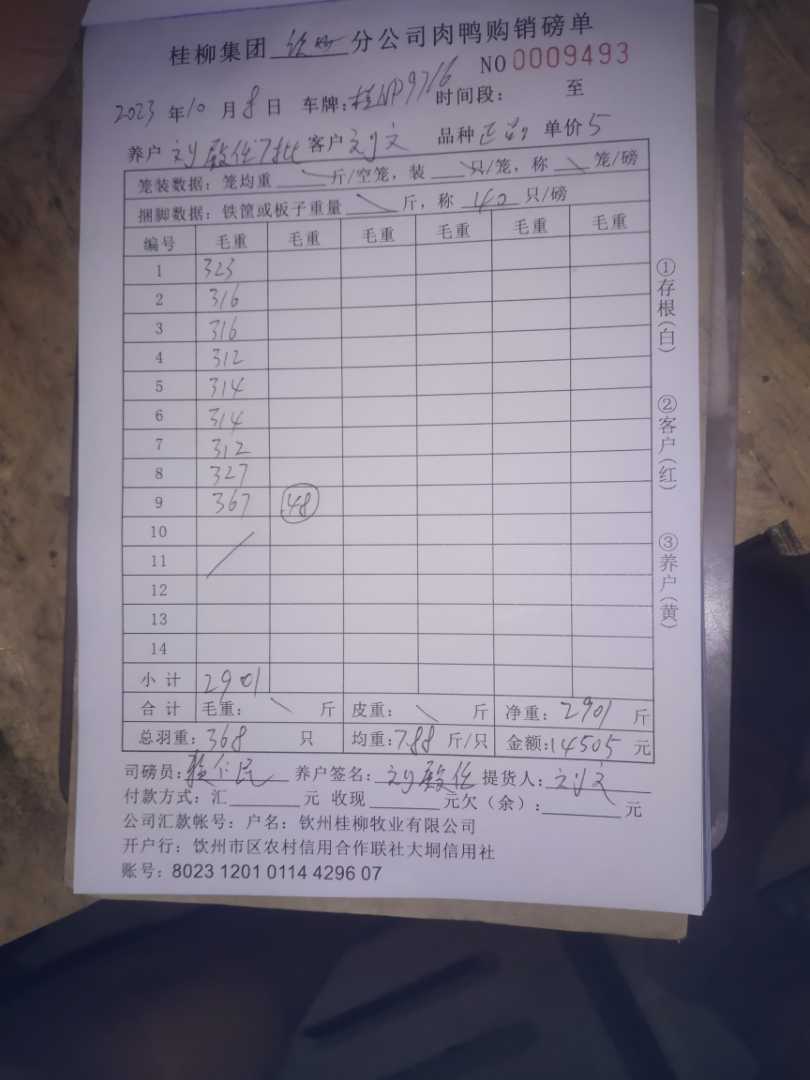 桂柳集团 钦州 分公司肉鸭购销磅单
NO 0009493
2023 年 10 月 8 日 车牌: 桂NP9716 时间段: 至
养户 刘殿任7批 客户 刘文 品种 正常 单价 5
笼装数据: 笼均重 \ 斤/空笼, 装 \ 只/笼, 称 \ 笼/磅
捆脚数据: 铁筐或板子重量 \ 斤, 称 40 只/磅
编号 毛重 毛重 毛重 毛重 毛重 毛重
1 323
2 316
3 316
4 312
5 314
6 314
7 312
8 327
9 367 48
10
11 /
12
13
14
小计 2901
合计 毛重: \ 斤 皮重: \ 斤 净重: 2901 斤
总羽重: 368 只 均重: 7.88 斤/只 金额: 14505 元
司磅员: 养户签名: 刘殿任 提货人: 刘文
付款方式: 汇 元 收现 元欠(余): 元
公司汇款帐号: 户名: 钦州桂柳牧业有限公司
开户行: 钦州市区农村信用合作联社大垌信用社
账号: 8023 1201 0114 4296 07
①存根(白)
②客户(红)
③养户(黄)